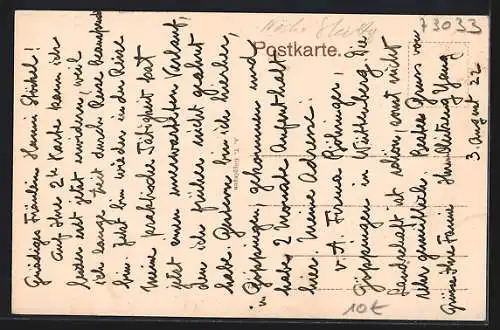 73033
Postkarte.
Gnädiges Fräulein Hanni
Auf Ihre 2te Karte kann ich
leider erst jetzt erwidern, weil
ich lange Zeit durch Reise
bin. Jetzt bin wieder in die Reise
meine praktische Tätigkeit hat
jetzt einen unerwarteten Verlauf,
den ich früher nicht geahnt
habe. Gestern bin ich hierher,
Göppingen, gekommen und
habe 2 Monate Aufenthalt
hier. Meine Adresse:
v. A Firma Böhringer,
Göppingen in Württemberg. Die
Landschaft ist schön, sonst nicht
sehr gemütlich. Besten Gruss von
Grüsse Ihre Fam.
3 August 22
10€